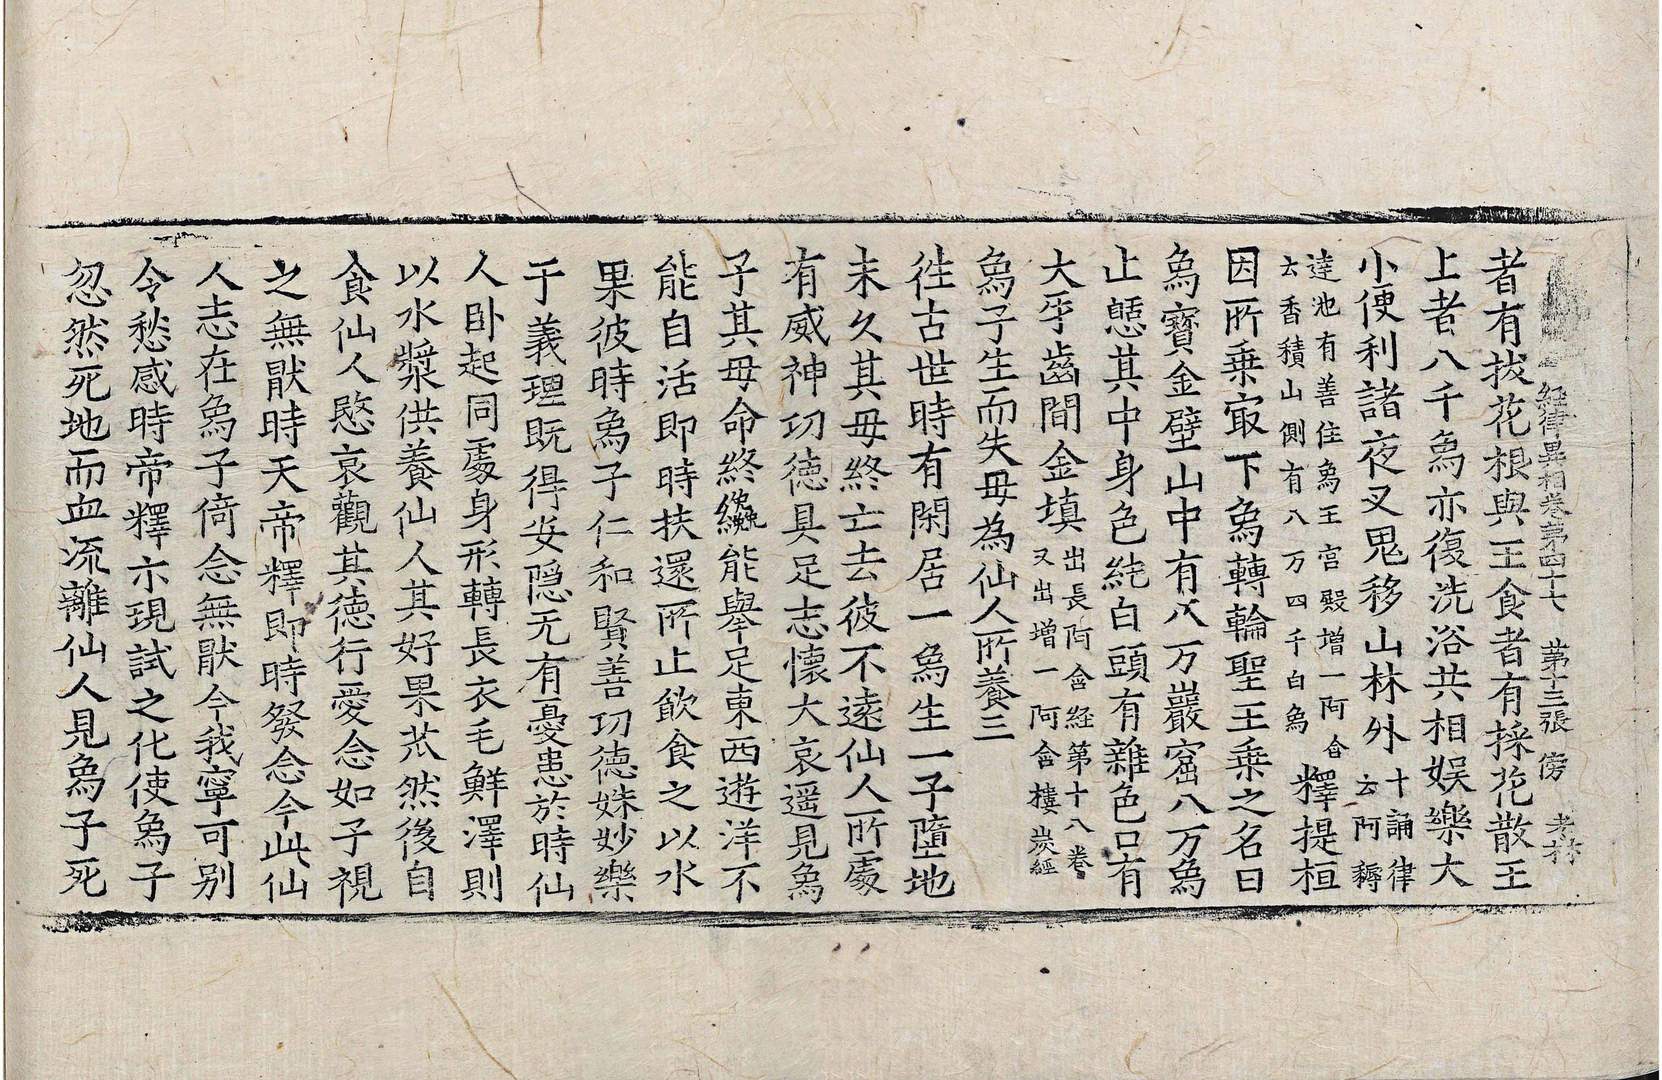 経律異相卷第四十七　第十三張　傍　孝林
者有拔花根與王食者有採花散王
上者八千𤉢亦復洗浴共相娛樂大
小便利諸夜叉鬼移山林外十誦律云阿耨
達池有善住𤉢王宮殿增一阿含云香積山側有八万四千白𤉢釋提桓
因所乗㝡下𤉢轉輪聖王乗之名曰
𤉢寶金壁山中有八万巖窟八万𤉢
止憩其中身色純白頭有雜色口有
大牙齒間金填出長阿含経第十八卷又出增一阿含樓炭經
𤉢子生而失毋為仙人所養三
徃古世時有閑居一𤉢生一子墮地
未久其毋終亡去彼不遠仙人所處
有威神功徳具足志懷大哀遥見𤉢
子其毋命終纔能舉足東西遊洋不
能自活即時扶還所止飲食之以水
果彼時𤉢子仁和賢善功德姝妙樂
于義理既得安隠无有憂患於時仙
人卧起同處身形轉長衣毛鮮澤則
以水漿供養仙人其好果苽然後自
食仙人愍哀觀其徳行愛念如子視
之無猒時天帝釋即時發念今此仙
人志在𤉢子倚念無猒今我寧可別
令愁慼時帝釋示現試之化使𤉢子
忽然死地而血流離仙人見𤉢子死